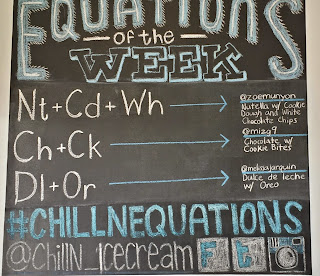 EQUATIONS
of the
WEEK
Nt + Cd + Wh
@zoemunyon
Nutella w/ Cookie
Dough and White
Chocolate Chips
Ch + Ck
@mizg9
Chocolate w/
Cookie Bites
Dl + Or
@mekaajarquin
Dulce de leche
w/ Oreo
#CHILLNEQUATIONS
@ChillN_Icecream f t